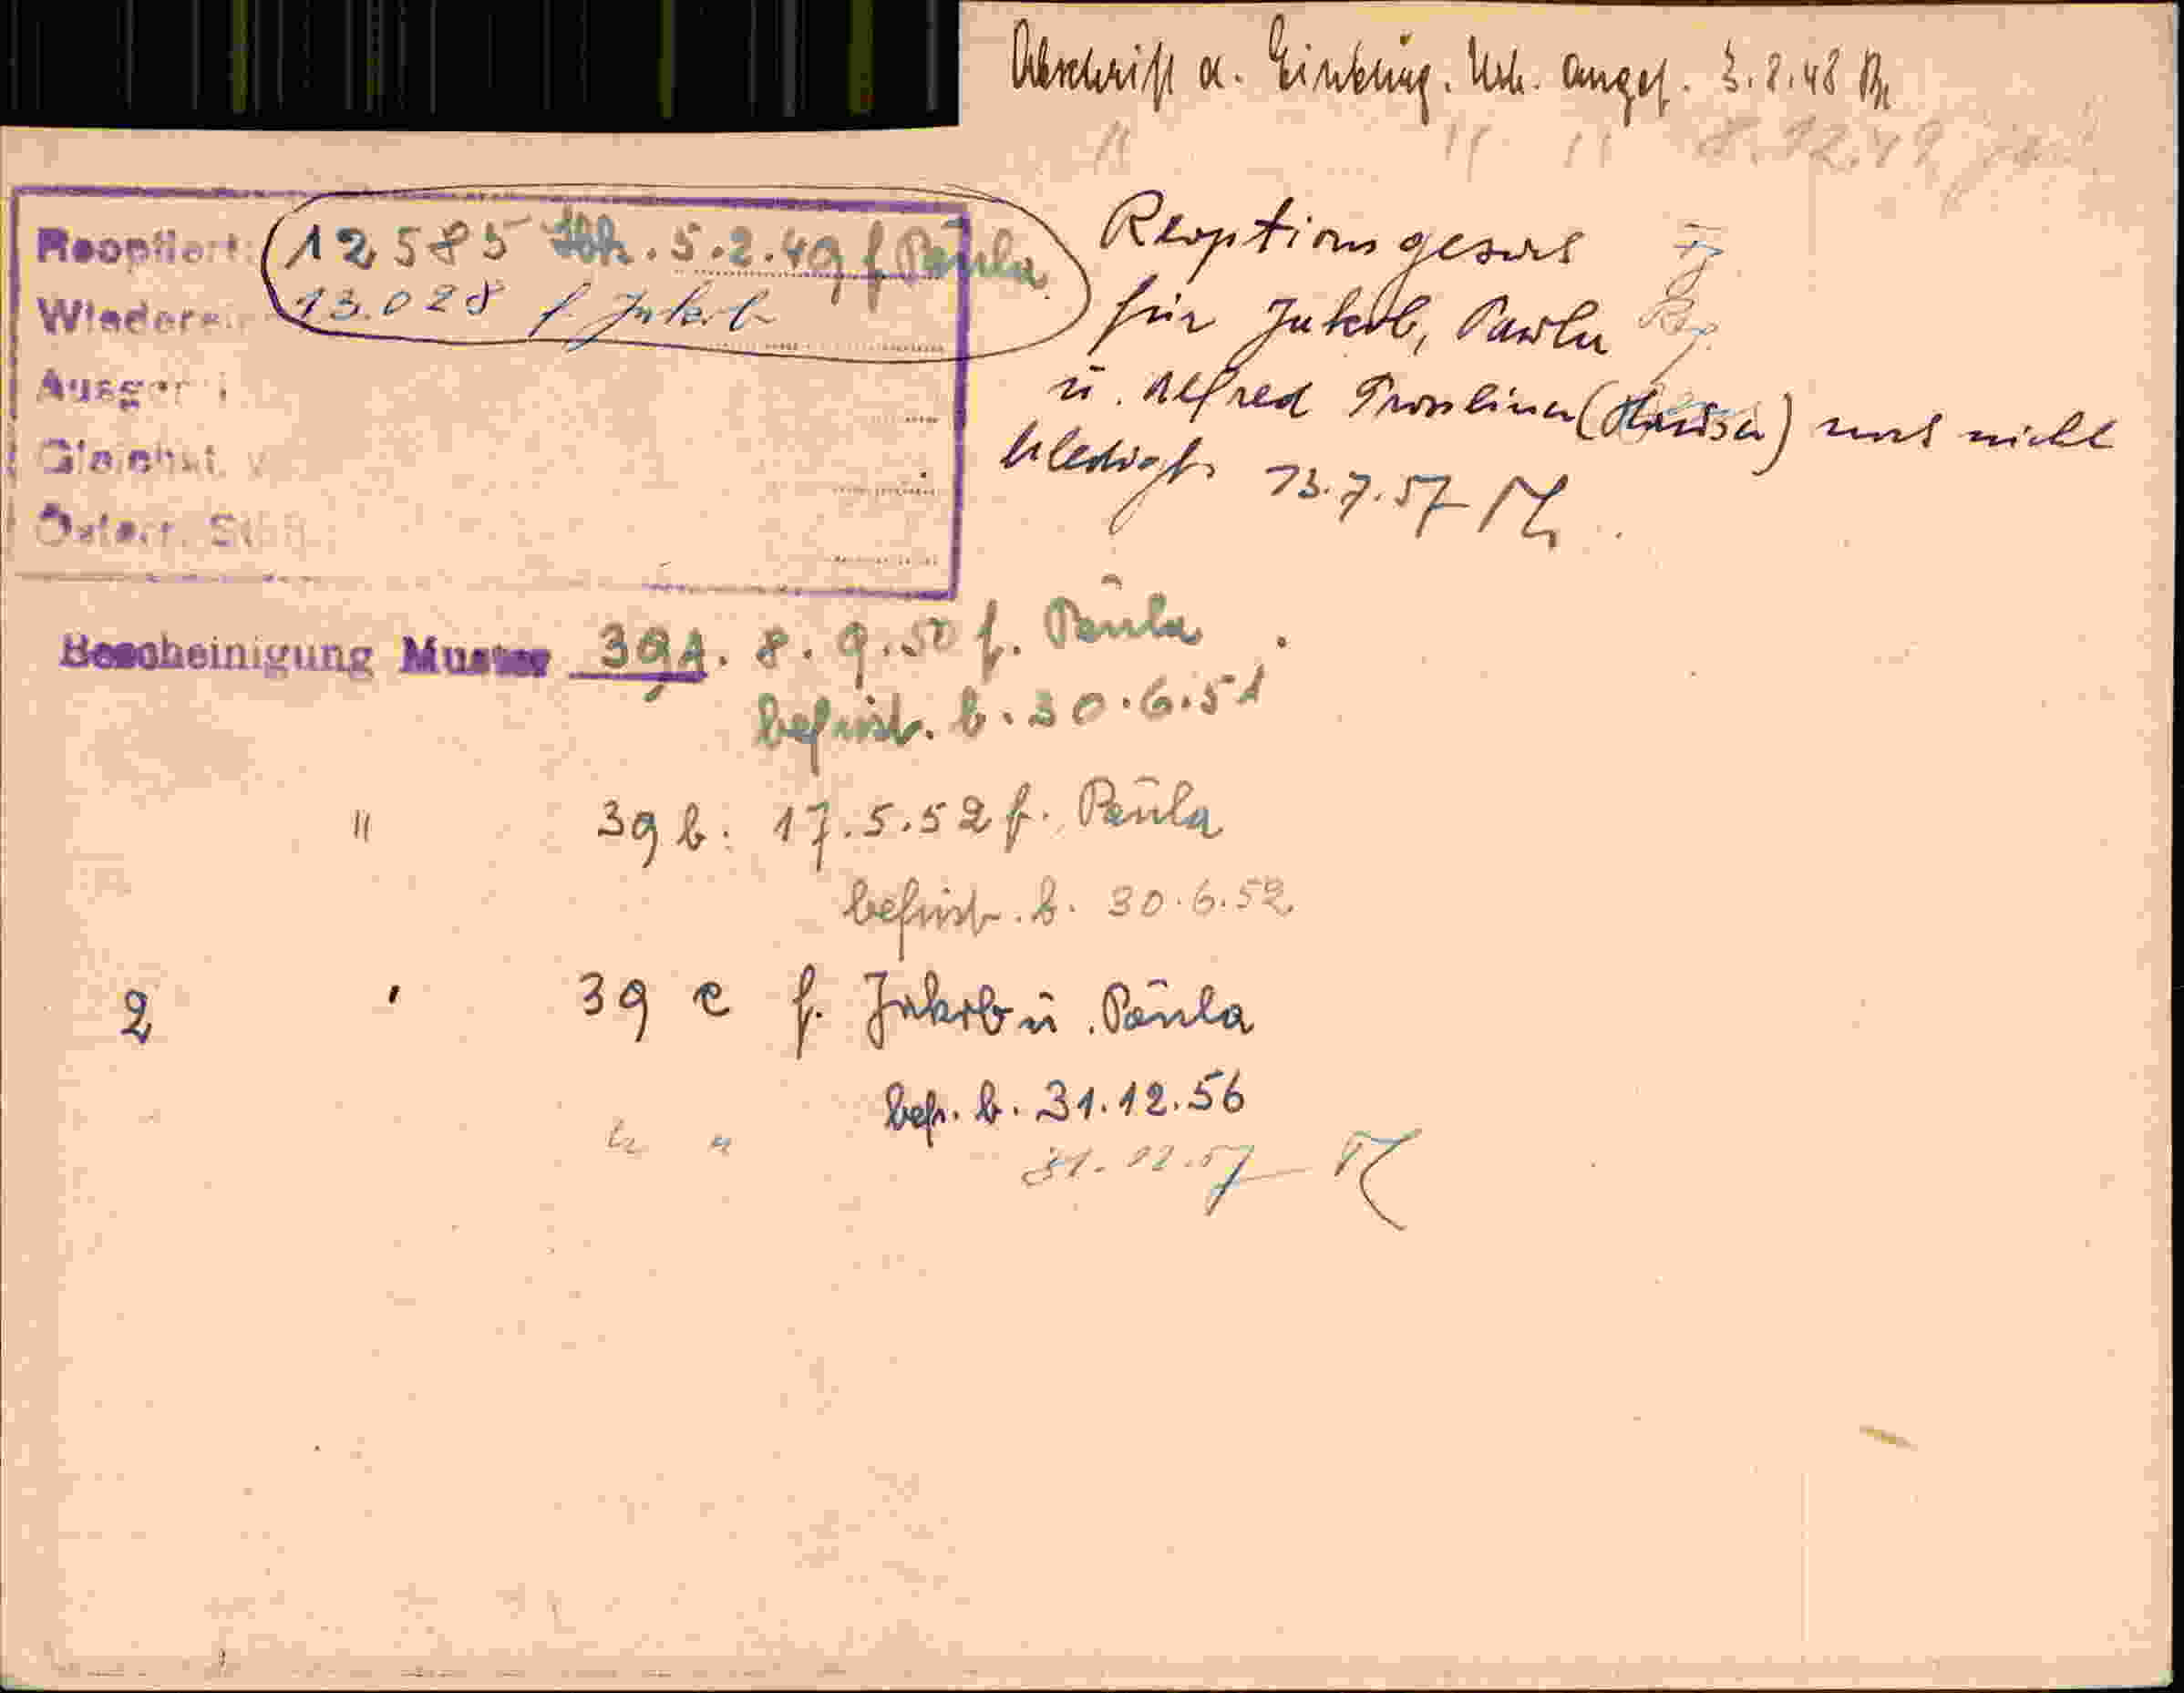 Abschrift a. Einbürg. Urk. angef. 3.8.48
" " " 8.12.49
Reoptiert: 12585 5.2.49 f Paula
Wiederein 13.028 f Jakob
Ausger
Gleichst. v
Österr. St
Reoptionsgesuch
für Jakob, Paula
u. Alfred noch nicht
erledigt. 13.7.57
Bescheinigung Muster 39a. 8.9.50 f. Paula
befrist. b. 30.6.51
" 39 b. 17.5.52 f. Paula
befrist. b. 30.6.52
2 " 39 c f. Jakob u. Paula
bef. b. 31.12.56
" 31.12.57